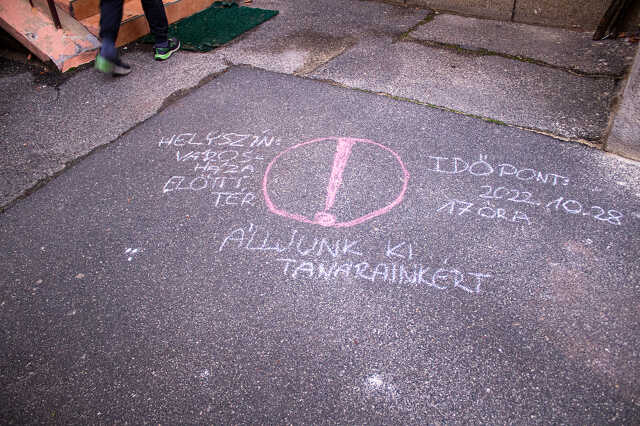 HELYSZÍN:
VÁROS-
HÁZA
ELŐTTI
TÉR
IDŐPONT:
2022.10.28
17 ÓRA
ÁLLJUNK KI
TANÁRAINKÉRT